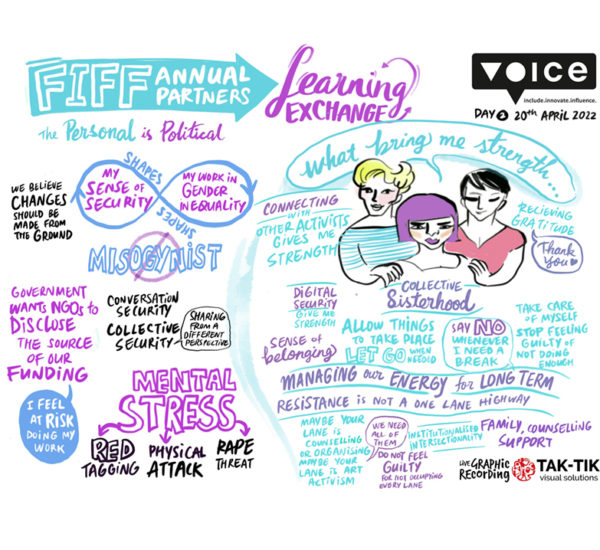 FIFF ANNUAL
PARTNERS
Learning
EXCHANGE
VOICE
include.innovate.influence.
DAY 2 20th APRIL 2022
The Personal is Political
WE BELIEVE
CHANGES
SHOULD BE
MADE FROM
THE GROUND
SHAPES
MY
SENSE OF
SECURITY
MY WORK IN
GENDER
INEQUALITY
SHAPES
MISOGYNIST
GOVERNMENT
WANTS NGOs TO
DISCLOSE
THE SOURCE
OF OUR
FUNDING
CONVERSATION
SECURITY
COLLECTIVE
SECURITY
SHARING
FROM A
DIFFERENT
PERSPECTIVE
I FEEL
AT RISK
DOING MY
WORK
MENTAL
STRESS
RED
TAGGING
PHYSICAL
ATTACK
RAPE
THREAT
what bring me strength...
CONNECTING
WITH
OTHER ACTIVISTS
GIVES ME
STRENGTH
RELIEVING
GRATITUDE
Thank
You
DIGITAL
SECURITY
GIVE ME
STRENGTH
COLLECTIVE
Sisterhood
SENSE OF
belonging
ALLOW THINGS
TO TAKE PLACE
LET GO WHEN
NEEDED
SAY NO
WHENEVER
I NEED A
BREAK
TAKE CARE
OF MYSELF
STOP FEELING
GUILTY OF
NOT DOING
ENOUGH
MANAGING our ENERGY for LONG TERM
RESISTANCE IS NOT A ONE LANE HIGHWAY
MAYBE YOUR
LANE IS
COUNSELLING
OR ORGANISING
MAYBE YOUR
LANE IS ART
ACTIVISM
WE NEED
ALL OF
THEM
DO NOT FEEL
GUILTY
FOR NOT OCCUPYING
EVERY LANE
INSTITUTIONALISED
INTERSECTIONALITY
FAMILY, COUNSELLING
SUPPORT
LIVE GRAPHIC
RECORDING
TAK-TIK
visual solutions